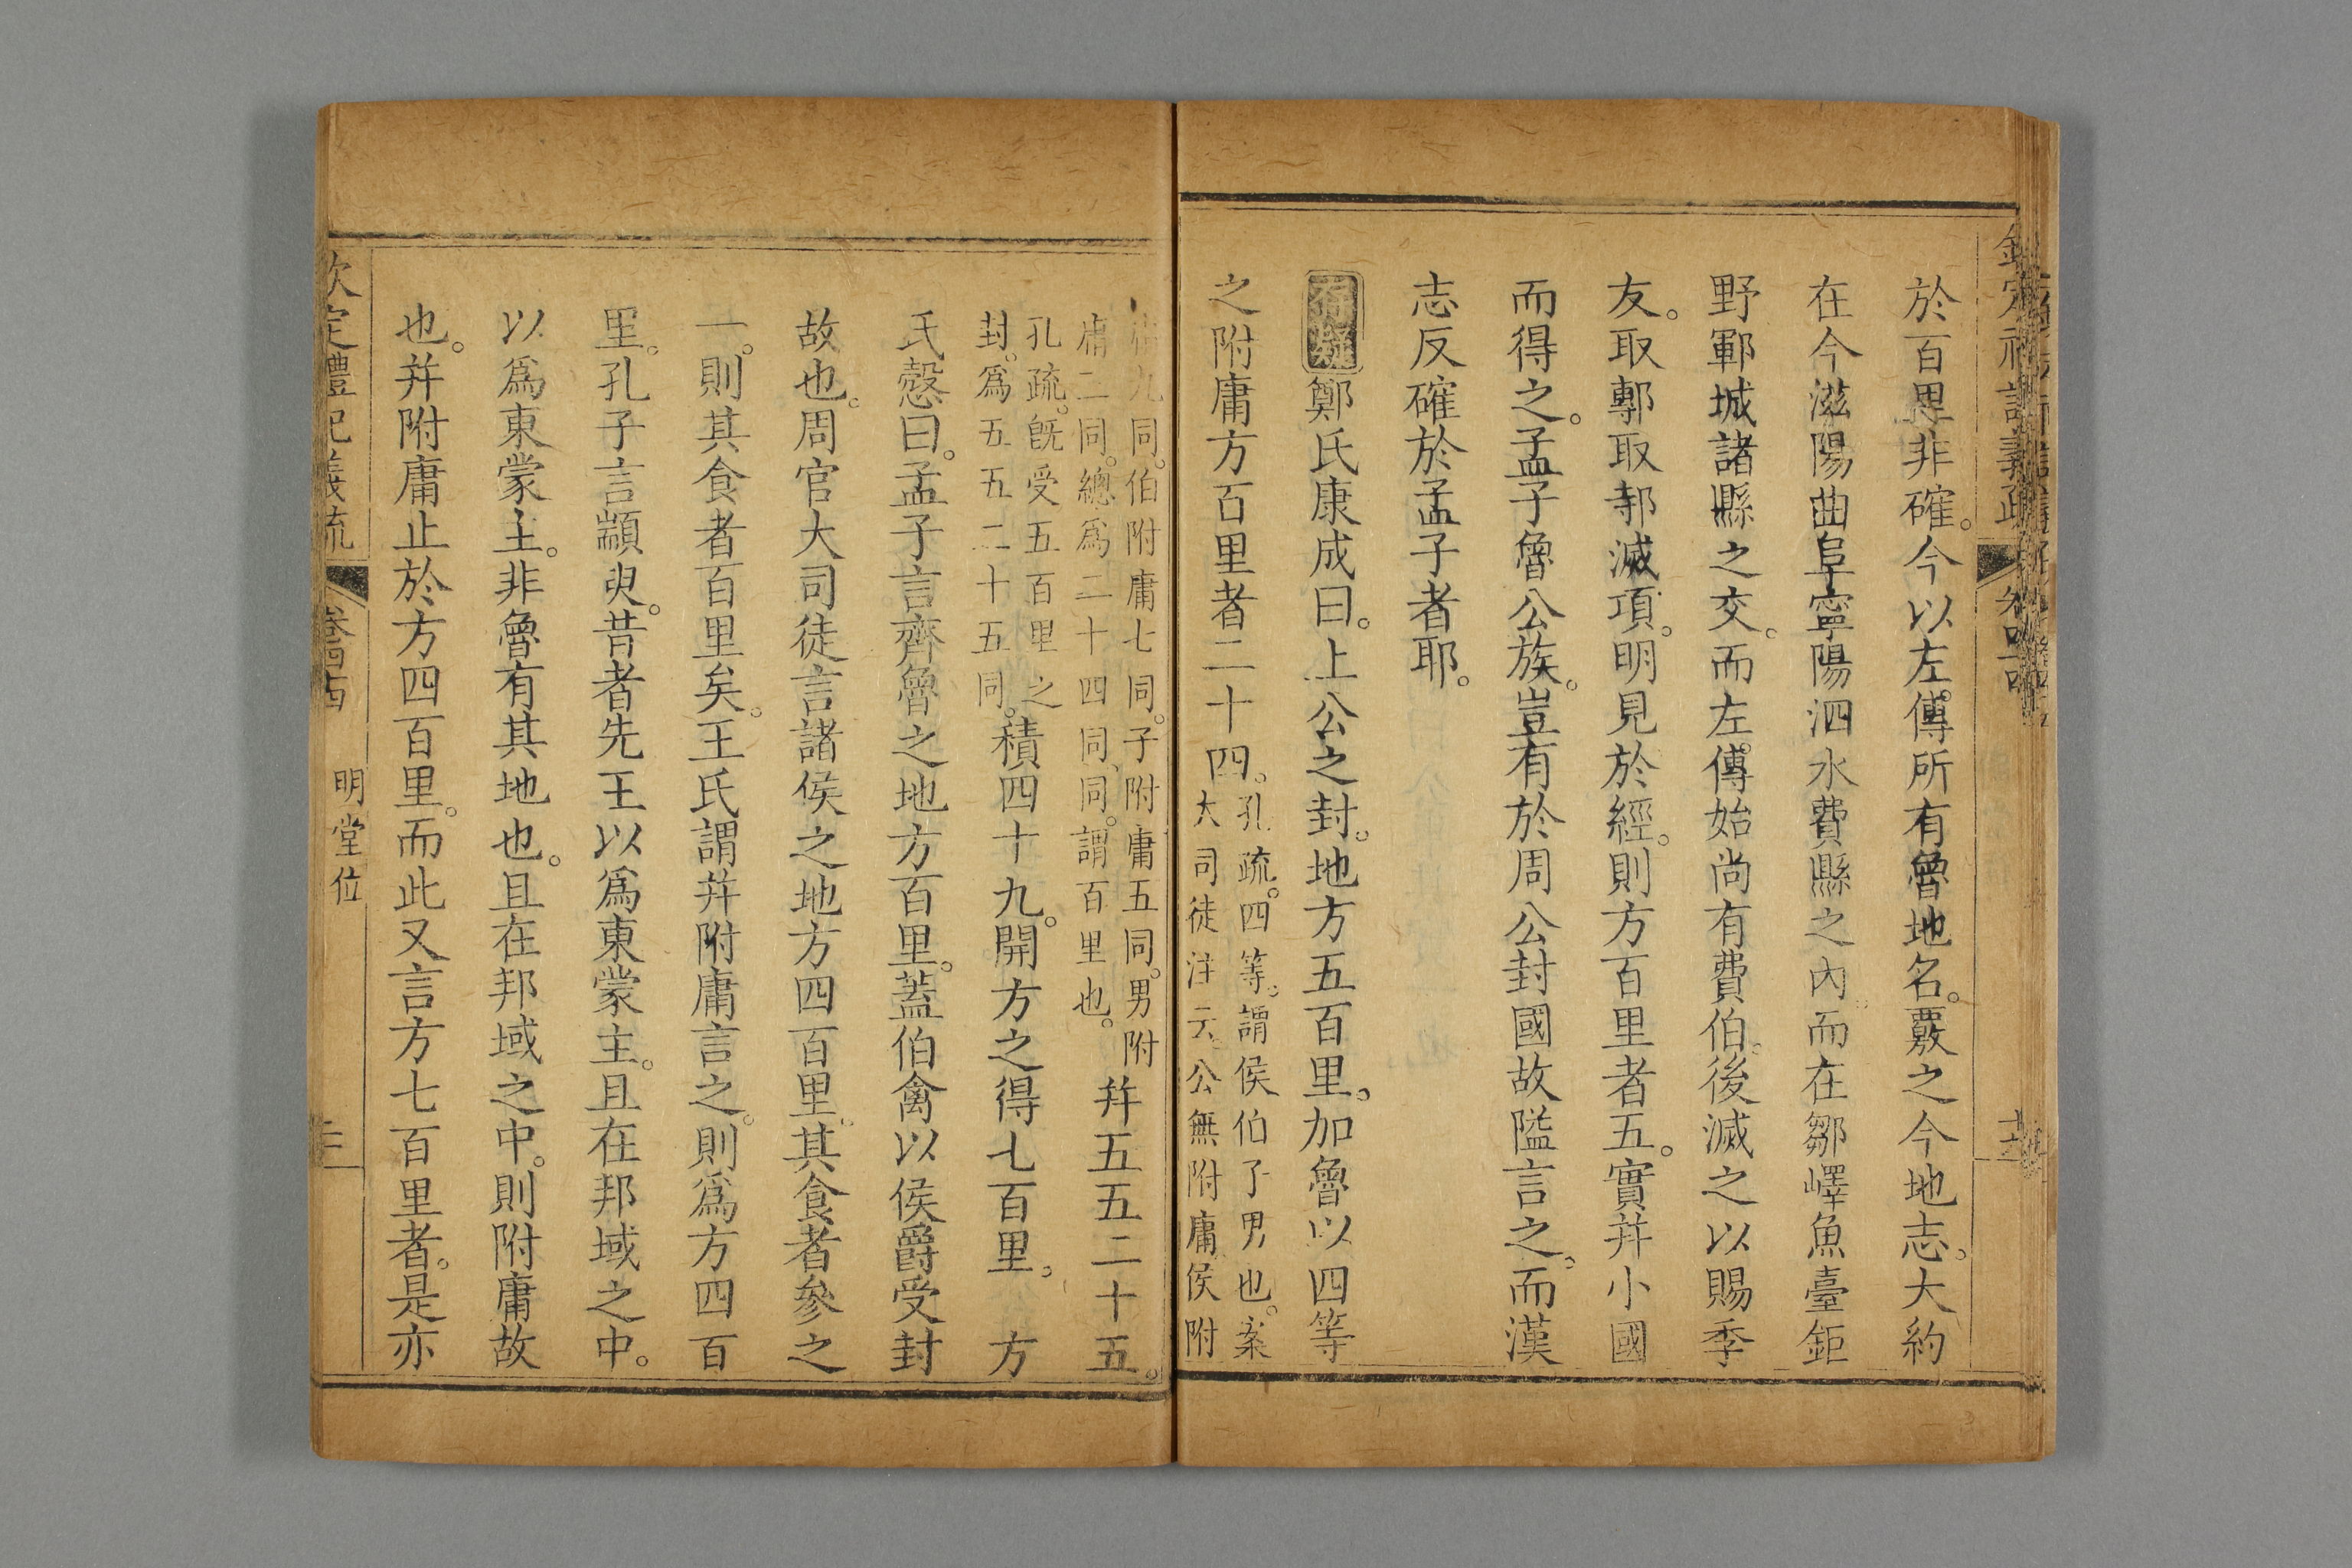 於百里非確。今以左傳所有魯地名。覈之今地志。大約
在今滋陽曲阜寧陽泗水費縣之內。而在鄒嶧魚臺鉅
野鄆城諸縣之交。而左傳始尚有費伯。後滅之以賜季
友。取鄟取邿滅項。明見於經。則方百里者五。實幷小國
而得之。孟子魯公族。豈有於周公封國故隘言之。而漢
志反確於孟子者耶。
存疑鄭氏康成曰。上公之封。地方五百里。加魯以四等
之附庸方百里者二十四。
孔疏。四等。謂侯伯子男也。案
大司徒注云。公無附庸。侯附
庸九同。伯附庸七同。子附庸五同。男附
庸三同。總爲二十四同。同。謂百里也。
幷五五二十五。
孔疏。旣受五百里之
封。爲五五二十五同。
積四十九。開方之得七百里。 方
氏慤曰。孟子言齊魯之地方百里。蓋伯禽以侯爵受封
故也。周官大司徒言諸侯之地方四百里。其食者參之
一。則其食者百里矣。王氏謂幷附庸言之。則爲方四百
里。孔子言顓臾。昔者先王以爲東蒙主。且在邦域之中。
以爲東蒙主。非魯有其地也。且在邦域之中。則附庸故
也。幷附庸止於方四百里。而此又言方七百里者。是亦
欽定禮記義疏
明堂位